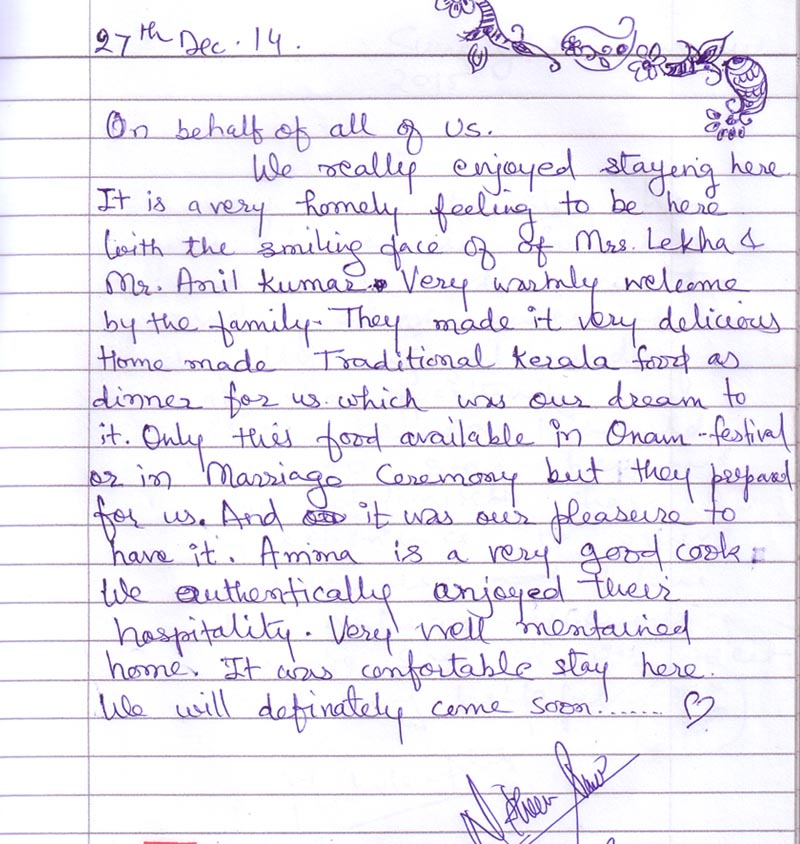 27th Dec. 14.
On behalf of all of us.
We really enjoyed stayeing here
It is a very homely feeling to be here
with the smiling face of of Mrs. Lekha &
Mr. Anil Kumar. Very warmly welcome
by the family. They made it very delicious
Home made Traditional Kerala food as
dinner for us which was our dream to
it. Only this food available in Onam-festival
or in Marriage Ceremony but they prepared
for us. And it was our pleasure to
have it. Amma is a very good cook.
We authentically anjoyed their
hospitality. Very well mentained
home. It was confortable stay here.
We will definately come soon.......